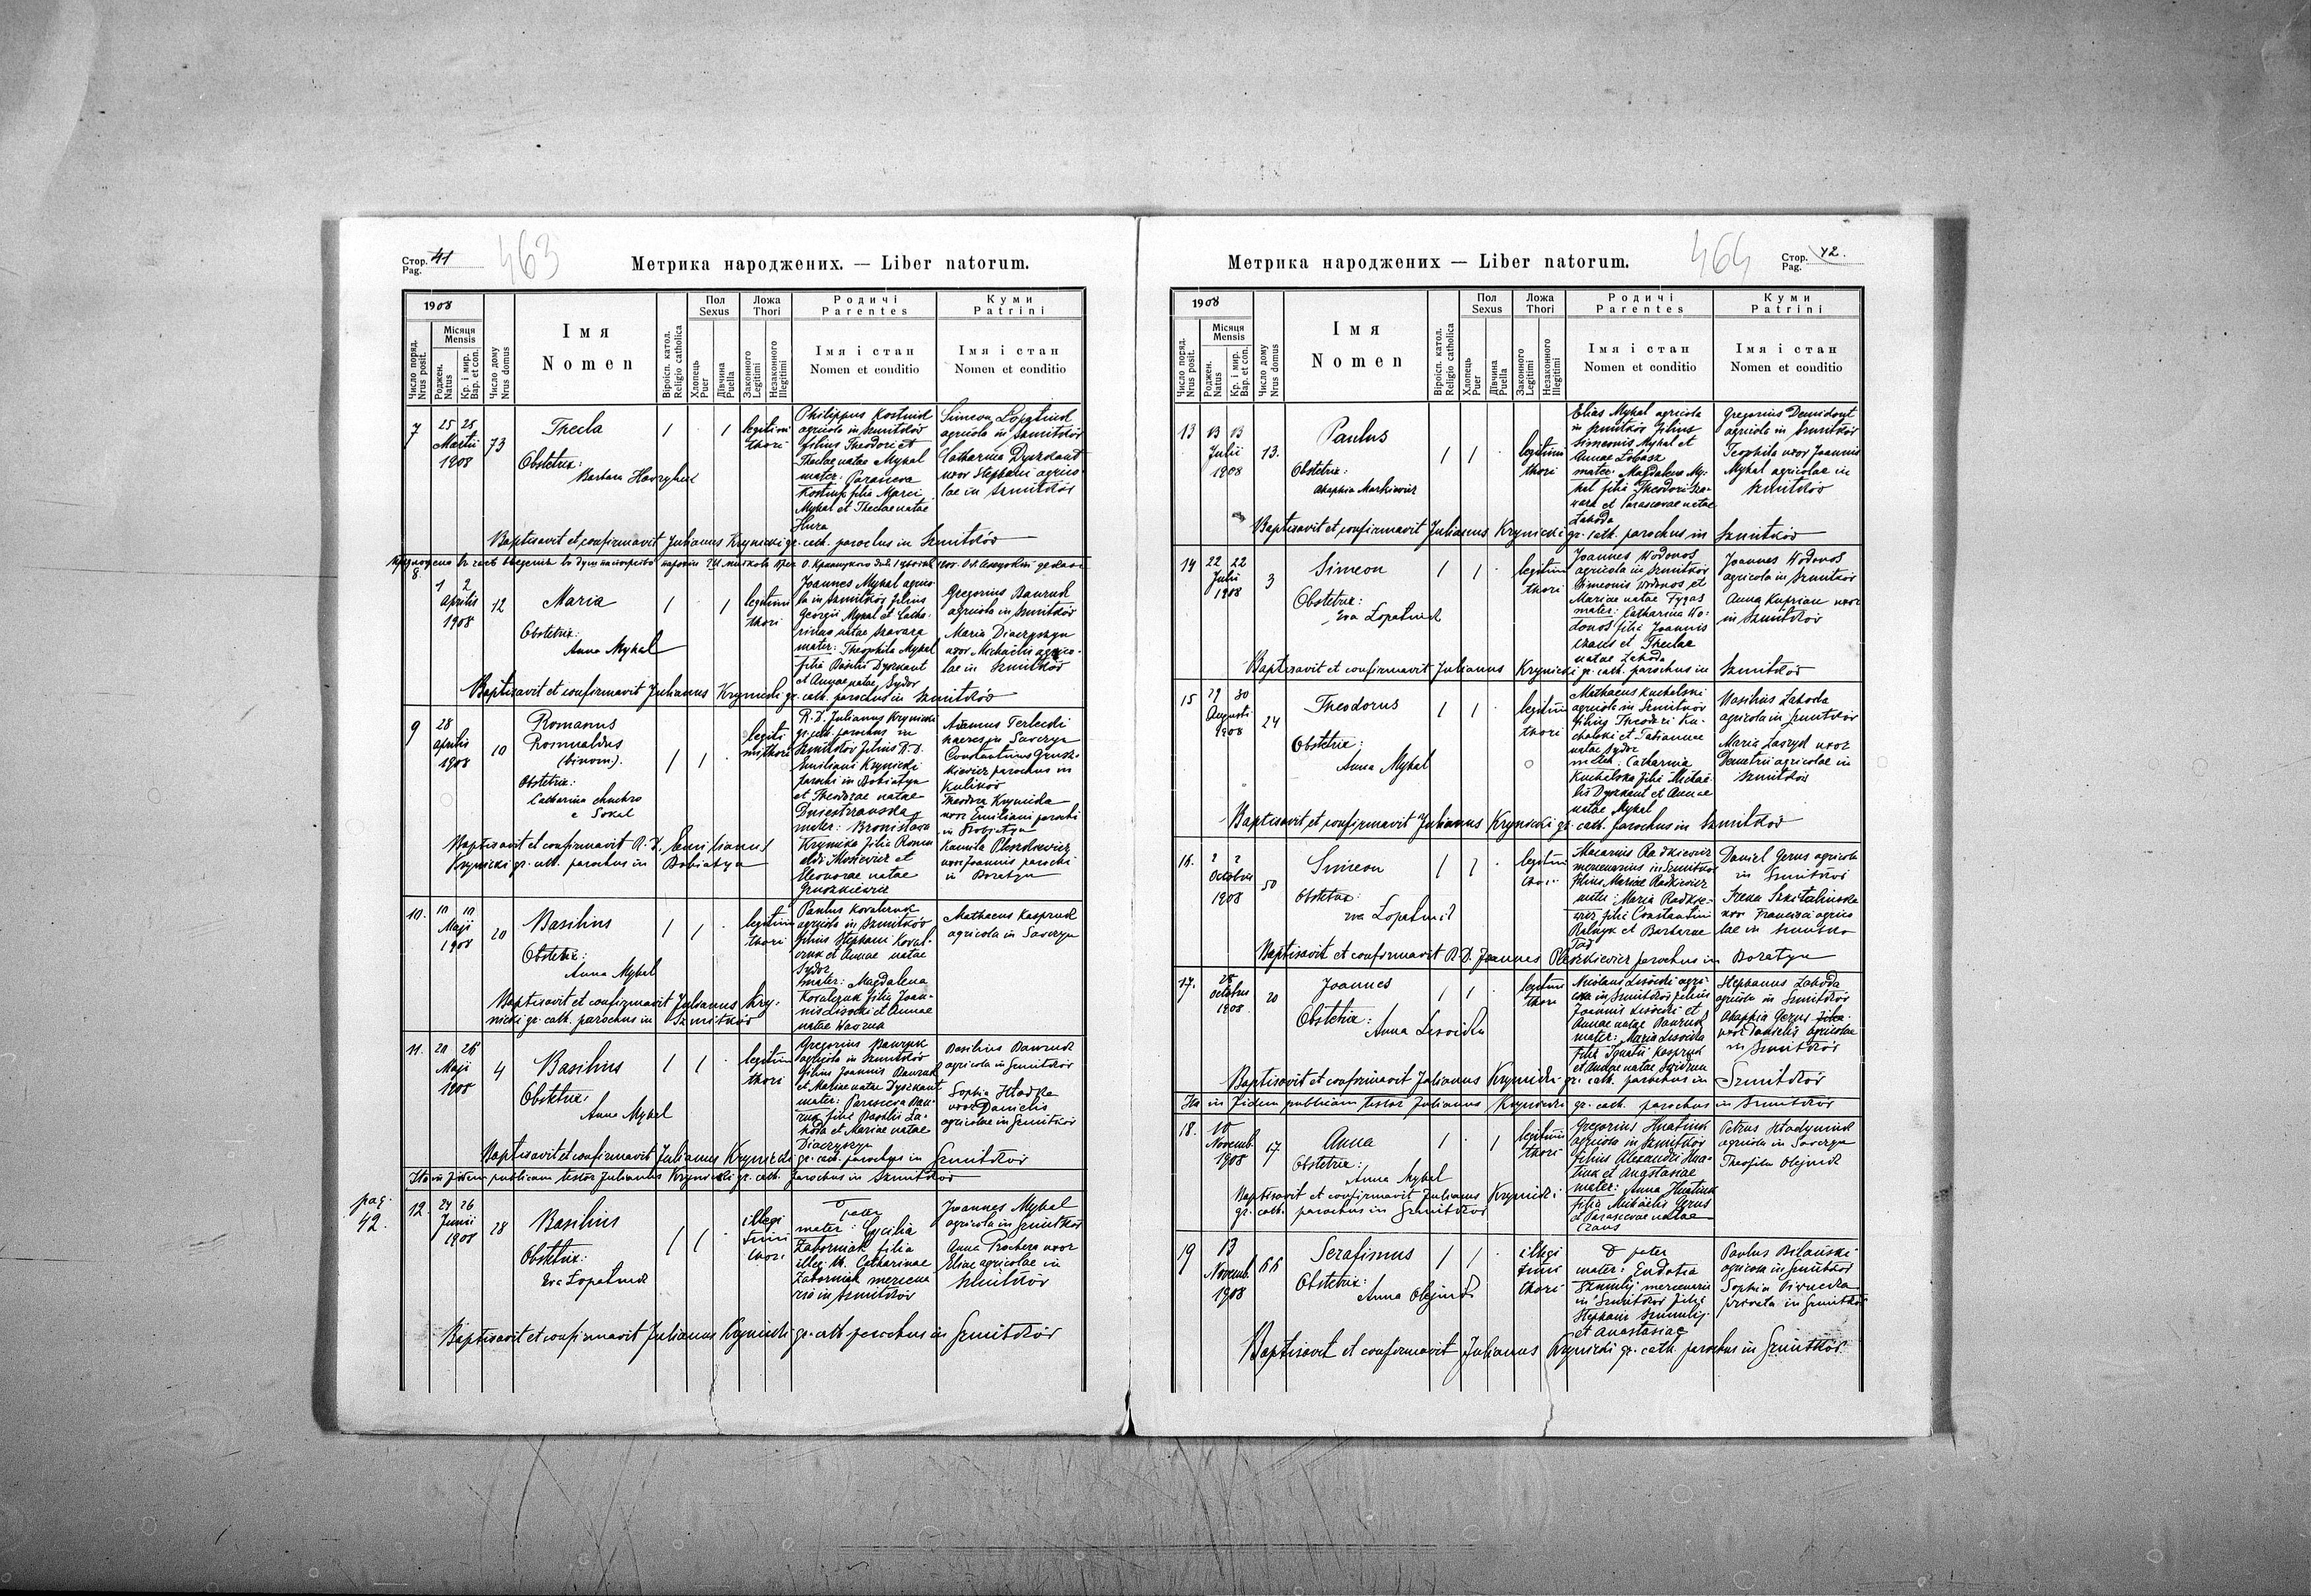 Стор. 41
Pag.
463
Метрика народжених. — Liber natorum.
1908
Число поряд.
Nrus posit.
Місяця
Mensis
Роджен.
Natus
Кр. і мир.
Bap. et con.
Число дому
Nrus domus
Імя
Nomen
Віроісп. катол.
Religio catholica
Пол
Sexus
Хлопець
Puer
Дівчина
Puella
Ложа
Thori
Законного
Legitimi
Незаконного
Illegitimi
Родичі
Parentes
Імя і стан
Nomen et conditio
Куми
Patrini
Імя і стан
Nomen et conditio
7
25 28
Martii
1908
73
Thecla
Obstetrix:
Barbara
1
1
legitimi
thori
Philippus Kostiuk
agricola in Szmitków
filius Theodori et
Theclae natae Mykal
mater: Parasceva
Kostiuk filia Marci
Mykal et Theclae natae
Hura
Simeon Łopatiuk
agricola in Szmitków
Catharina Dyszkant
uxor Stephani agrico-
lae in Szmitków
Baptisavit et confirmavit Julianus Krynicki gr. cath. parochus in Szmitków
8.
1 2
Aprilis
1908
12
Maria
Obstetrix:
Anna Mykal
1
1
legitimi
thori
Joannes Mykal agrico-
la in Szmitków filius
Georgii Mykal et Catha-
rinae natae Szavara
mater: Theophila Mykal
filia Basilii Dyszkant
et Annae natae Sydor
Gregorius Bawruk
agricola in Szmitków
Maria Diaczyszyn
uxor Michaelis agrico-
lae in Szmitków
Baptisavit et confirmavit Julianus Krynicki gr. cath. parochus in Szmitków
9
28
Aprilis
1908
10
Romanus
Romualdus
(binom).
Obstetrix:
Catharina
e Sokal
1
1
legiti
mi thori
R. D. Julianus Krynicki
gr. cath. parochus in
Szmitków filius R. D.
Emiliani Krynicki
parochi in Bobiatyn
et Theodorae natae
Dniestrzanska
mater: Bronislava
Krynicka filia Romu
aldi et
Eleonorae natae
Gruszkiewicz
Terlecki
in Savczyn
Constantinus Grusz-
kiewicz parochus in
Kulików
Theodora Krynicka
uxor Emiliani parochi
in Bobiatyn
Kamila Pleszkiewicz
uxor Joannis parochi
in Boratyn
Baptisavit et confirmavit R. D. Emilianus
Krynicki gr. cath. parochus in Bobiatyn
10.
10 10
Maji
1908
20
Basilius
Obstetrix:
Anna Mykal
1
1
legitimi
thori
Paulus Kovalczuk
agricola in Szmitków
filius Stephani Koval-
czuk et Annae natae
Sydor
mater: Magdalena
Kovalczuk filia Joan-
nis Lisocki et Annae
natae
Mathaeus Kaspruk
agricola in Savczyn
Baptisavit et confirmavit Julianus Kry-
nicki gr. cath. parochus in Szmitków
11.
Maji
1908
4
Basilius
Obstetrix:
Anna Mykal
1
1
legitimi
thori
Gregorius Bawruk
agricola in Szmitków
filius Joannis Bawruk
et Mariae natae Dyszkant
mater: Parasceva Baw-
ruk filia Basilii La-
hoda et Mariae natae
Diaczyszyn
Basilius Bawruk
agricola in Szmitków
Sophia Hladka
uxor Danielis
agricolae in Szmitków
Baptisavit et confirmavit Julianus Krynicki gr. cath. parochus in Szmitków
Ita in fidem publicam testor Julianus Krynicki gr. cath. parochus in Szmitków
pag.
42.
12.
24 26
Junii
1908
28
Basilius
Obstetrix:
Eva Łopatiuk
1
1
illegi
timi
thori
pater
mater: Cycilia
Zaborniak filia
illeg. th. Catharinae
Zaborniak mercena
ria in Szmitków
Joannes Mykal
agricola in Szmitków
Anna Prochera uxor
Eliae agricolae in
Szmitków
Baptisavit et confirmavit Julianus Krynicki gr. cath. parochus in Szmitków
Метрика народжених — Liber natorum.
464
Стор. 42.
Pag.
1908
Число поряд.
Nrus posit.
Місяця
Mensis
Роджен.
Natus
Кр. і мир.
Bap. et con.
Число дому
Nrus domus
Імя
Nomen
Віроісп. катол.
Religio catholica
Пол
Sexus
Хлопець
Puer
Дівчина
Puella
Ложа
Thori
Законного
Legitimi
Незаконного
Illegitimi
Родичі
Parentes
Імя і стан
Nomen et conditio
Куми
Patrini
Імя і стан
Nomen et conditio
13
13 13
Julii
1908
73.
Paulus
Obstetrix:
Ahaphia Markiewicz
1
1
legitimi
thori
Elias Mykal agricola
in Szmitków filius
Simeonis Mykal et
Annae
mater: Magdalena My-
kal filia Theodori Sza-
vara et Parascevae natae
Lahoda
Gregorius Demidont
agricola in Szmitków
Teophila uxor Joannis
Mykal agricolae in
Szmitków
Baptisavit et confirmavit Julianus Krynicki gr. cath. parochus in Szmitków
14
22 22
Julii
1908
3
Simeon
Obstetrix:
Eva Łopatiuk
1
1
legitimi
thori
Joannes Wodonos
agricola in Szmitków
Simeonis Wodonos et
Mariae natae Tygas
mater: Catharina Wo-
donos filia Joannis
Czaus et Theclae
natae Lahoda
Joannes Wodonos
agricola in Szmitków
Anna Kuprian uxor
in Szmitków
Baptisavit et confirmavit Julianus Krynicki gr. cath. parochus in Szmitków
15
29 30
Augusti
1908
24
Theodorus
Obstetrix:
Anna Mykal
1
1
legitimi
thori
Mathaeus Kuchelski
agricola in Szmitków
filius Theodori Ku-
chelski et Tatiannae
natae Sydor
mater: Catharina
Kuchelska filia Michae-
lis Dyszkant et Annae
natae Mykal
Basilius Lahoda
agricola in Szmitków
Maria uxor
Demetrii agricolae in
Szmitków
Baptisavit et confirmavit Julianus Krynicki gr. cath. parochus in Szmitków
16.
2 2
Octobris
1908
50
Simeon
Obstetrix:
Eva Łopatiuk
1
1
legitimi
thori
Macarius Radkiewicz
mercenarius in Szmitków
filius Mariae Radkiewicz
mater: Maria Radkie-
wicz filia Constantini
et Barbarae
Daniel Gerus agricola
in Szmitków
uxor Francisci agrico
lae in Szmitków
Baptisavit et confirmavit R. D. Joannes Pleszkiewicz parochus in Boratyn
17.
28
Octobris
1908
20
Joannes
Obstetrix:
Anna Lisoicka
1
1
legitimi
thori
Nicolaus Lisoicki agri-
cola in Szmitków filius
Joannis Lisoicki et
Annae natae Bawruk
mater: Maria Lisoicka
filia Ignatii Kaspruk
et Annae natae
Stephanus Lahoda
agricola in Szmitków
Ahaphia Gerus
uxor Danielis agricolae
in Szmitków
Baptisavit et confirmavit Julianus Krynicki gr. cath. parochus in Szmitków
Ita in fidem publicam testor Julianus Krynicki gr. cath. parochus in Szmitków
18.
10
Novemb.
1908
17
Anna
Obstetrix:
Anna Mykal
1
1
legitimi
thori
Gregorius Hnatiuk
agricola in Szmitków
filius Alexandri Hna-
tiuk et Anastasiae
mater: Anna Hnatiuk
filia Michaelis Gerus
et Parascevae natae
Czaus
Petrus Hladyniuk
agricola in Savczyn
Theofila Olejnik
Baptisavit et confirmavit Julianus Krynicki
gr. cath. parochus in Szmitków
19
13
Novemb.
1908
66
Serafimus
Obstetrix:
Anna Olejnik
1
1
illegi
timi
thori
pater
mater: Eudoxia
mercenaria
in Szmitków filia
Stephani
et Anastasiae
Paulus Bilański
agricola in Szmitków
Sophia
privata in Szmitków
Baptisavit et confirmavit Julianus Krynicki gr. cath. parochus in Szmitków